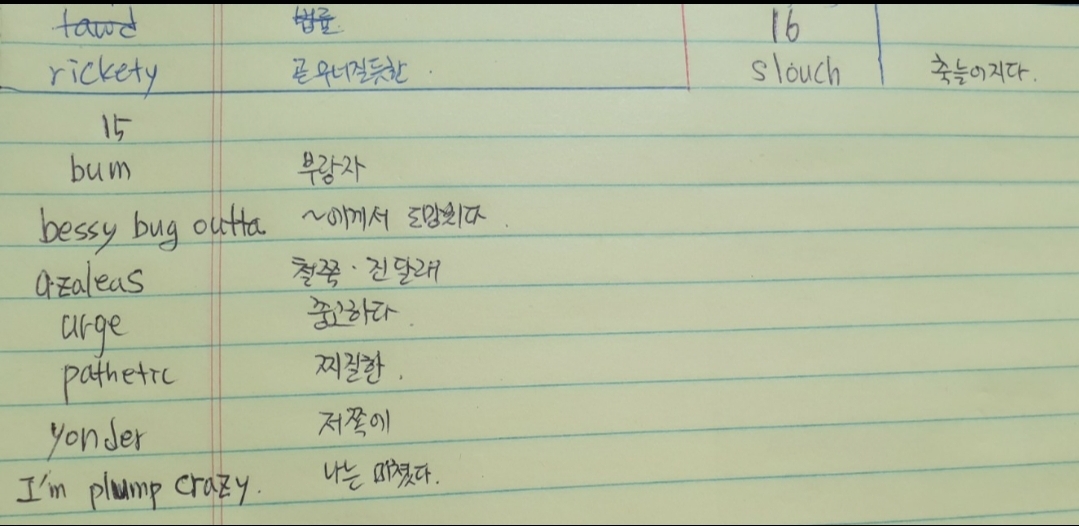 rickety 곧 무너질듯한. slouch 축 늘어지다.
16
15
bum 부랑자
bessy bug outta ~에게서 도망치다.
azaleas 철쭉·진달래
urge 충고하다.
pathetic 찌질한.
yonder 저쪽에
I'm plump crazy. 나는 미쳤다.